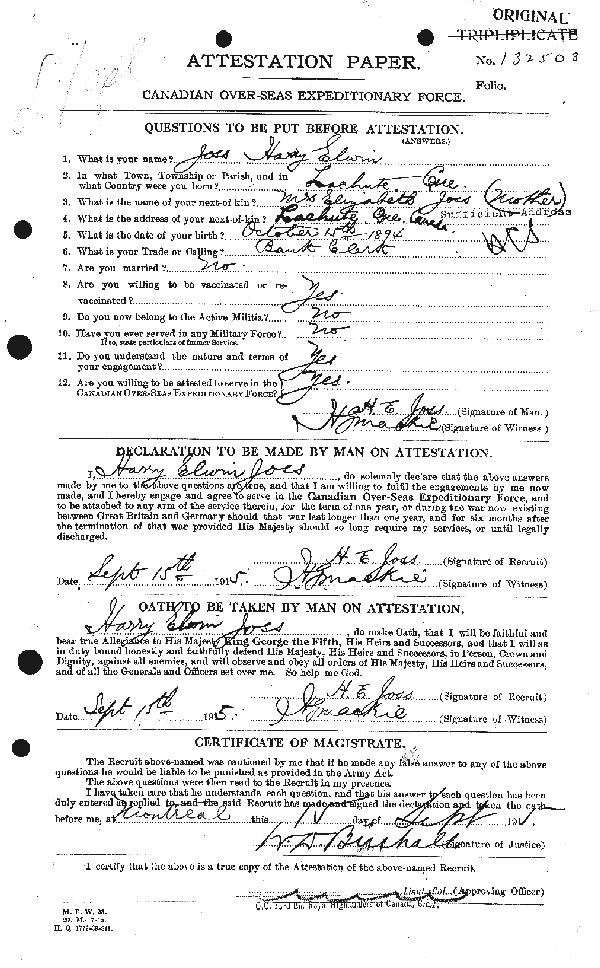 ORIGINAL
TRIPLIPLICATE
ATTESTATION PAPER.
No. 132503
Folio.
CANADIAN OVER-SEAS EXPEDITIONARY FORCE.
QUESTIONS TO BE PUT BEFORE ATTESTATION.
(ANSWERS.)
1. What is your name? Joss Harry Elwin
2. In what Town, Township or Parish, and in
what Country were you born? Lachute Que.
3. What is the name of your next-of-kin? Mrs Elizabeth Joss (Mother)
4. What is the address of your next-of-kin? Lachute, Que, Canada Sufficient Address
5. What is the date of your birth? October 15th 1894
6. What is your Trade or Calling? Bank Clerk
7. Are you married? No
8. Are you willing to be vaccinated or re-
vaccinated? Yes
9. Do you now belong to the Active Militia? No
10. Have you ever served in any Military Force? No
If so, state particulars of former Service.
11. Do you understand the nature and terms of
your engagement? Yes
12. Are you willing to be attested to serve in the
CANADIAN OVER-SEAS EXPEDITIONARY FORCE? Yes.
H. E. Joss (Signature of Man.)
(Signature of Witness)
DECLARATION TO BE MADE BY MAN ON ATTESTATION.
I, Harry Elwin Joss, do solemnly declare that the above answers
made by me to the above questions are true, and that I am willing to fulfil the engagements by me now
made, and I hereby engage and agree to serve in the Canadian Over-Seas Expeditionary Force, and
to be attached to any arm of the service therein, for the term of one year, or during the war now existing
between Great Britain and Germany should that war last longer than one year, and for six months after
the termination of that war provided His Majesty should so long require my services, or until legally
discharged.
H. E. Joss (Signature of Recruit)
Date Sept 15th 1915. (Signature of Witness)
OATH TO BE TAKEN BY MAN ON ATTESTATION.
I, Harry Elwin Joss, do make Oath, that I will be faithful and
bear true Allegiance to His Majesty King George the Fifth, His Heirs and Successors, and that I will as
in duty bound honestly and faithfully defend His Majesty, His Heirs and Successors, in Person, Crown and
Dignity, against all enemies, and will observe and obey all orders of His Majesty, His Heirs and Successors,
and of all the Generals and Officers set over me. So help me God.
H. E. Joss (Signature of Recruit)
Date Sept 15th 1915. (Signature of Witness)
CERTIFICATE OF MAGISTRATE.
The Recruit above-named was cautioned by me that if he made any false answer to any of the above
questions he would be liable to be punished as provided in the Army Act.
The above questions were then read to the Recruit in my presence.
I have taken care that he understands each question, and that his answer to each question has been
duly entered as replied to, and the said Recruit has made and signed the declaration and taken the oath
before me, at Montreal this day of Sept 191
(Signature of Justice)
I certify that the above is a true copy of the Attestation of the above-named Recruit.
Lieut. Col. (Approving Officer)
Royal Highlanders of Canada,
M. F. W. M.